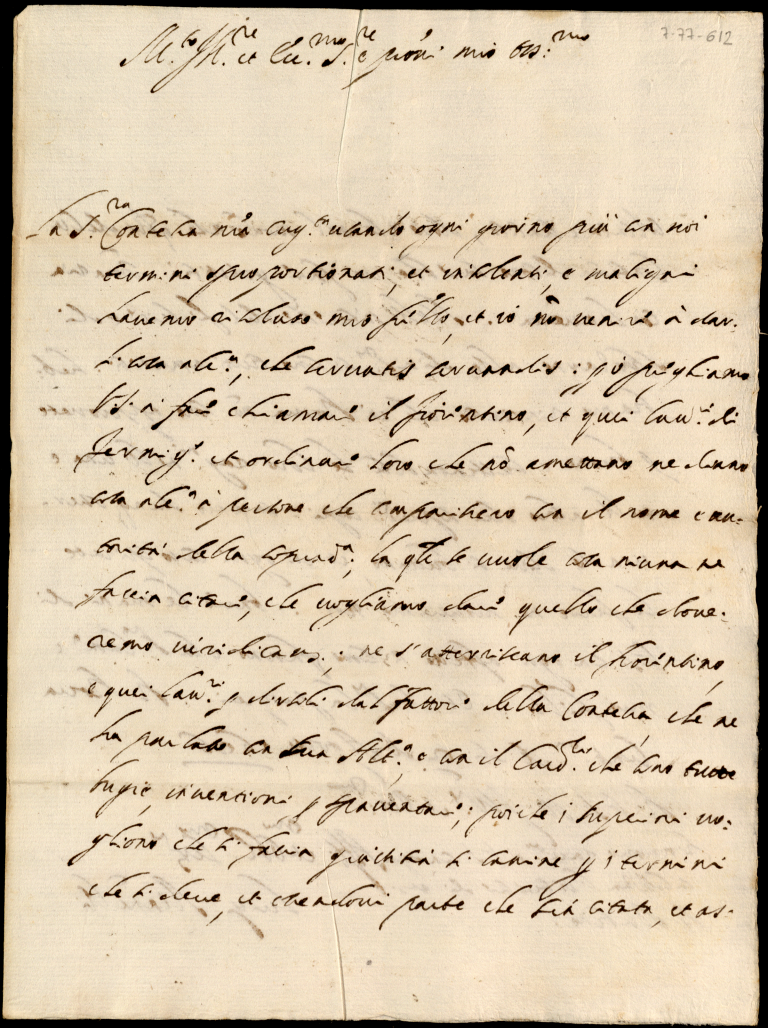 7-77-612
M.to Ill.re et Ecc.mo S.re e pron mio oss.mo
La S.ra Contessa mia cug.na usando ogni giorno più con noi
termini sproportionati, et insolenti, e maligni
havemo risoluto mio frello, et io nō venire à dar.
li cosa alc.a, che : pò preghiamo
VS. à farsi chiamare il fiorentino, et quei lavor.ri di
et ordinare loro che nō amettano ne diano
cosa alc.a à persone che comparissero con il nome e au-
torità della sopradª, la qle se vuole cosa niuna ne
faccia citare, che vogliamo dare quello che dove-
remo ; ne s'atterriscano il fiorentino,
e quei lavor.ri p dirsili dal fattore della Contessa, che ne
ha parlato con sua Alt.a e con il Card.le che sono tutte
bugie, inventioni p spaventare; poiche i superiori vo-
gliono che si faccia giustitia si camine p i termini
che si deve, et essendovi parte che sia citata, et as-